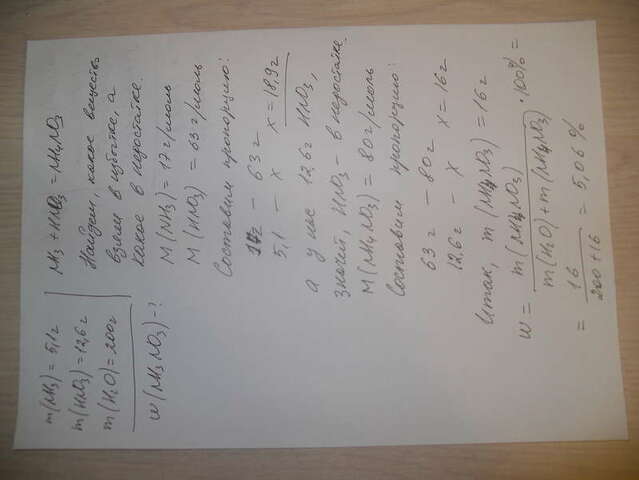 m(NH3) = 5,1г
m(HNO3) = 12,6г
m(H2O) = 200г
w(NH4NO3) - ?
NH3 + HNO3 = NH4NO3
Найдем, какое вещество
взяли в избытке, а
какое в недостатке.
M(NH3) = 17 г/моль
M(HNO3) = 63 г/моль
Составим пропорцию:
17г - 63г
5,1 - x x = 18,9г
а у нас 12,6г HNO3,
значит, HNO3 - в недостатке.
M(NH4NO3) = 80 г/моль
Составим пропорцию:
63г - 80г
12,6г - x x = 16г
Итак, m(NH4NO3) = 16г
w = m(NH4NO3) / m(H2O) + m(NH4NO3) · 100% =
= 16 / 200 + 16 = 5,06%